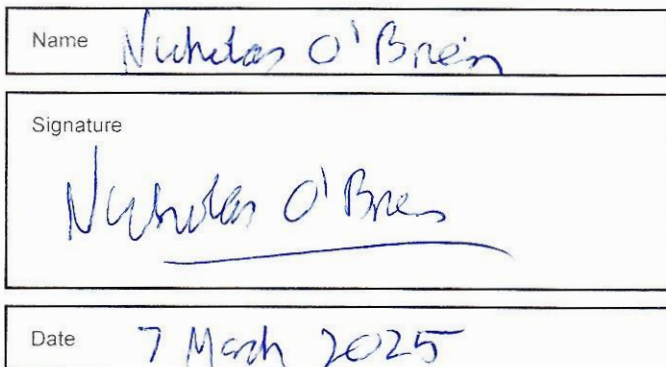 Name Nicholas O'Brien
Signature
Nicholas O'Brien
Date 7 March 2025